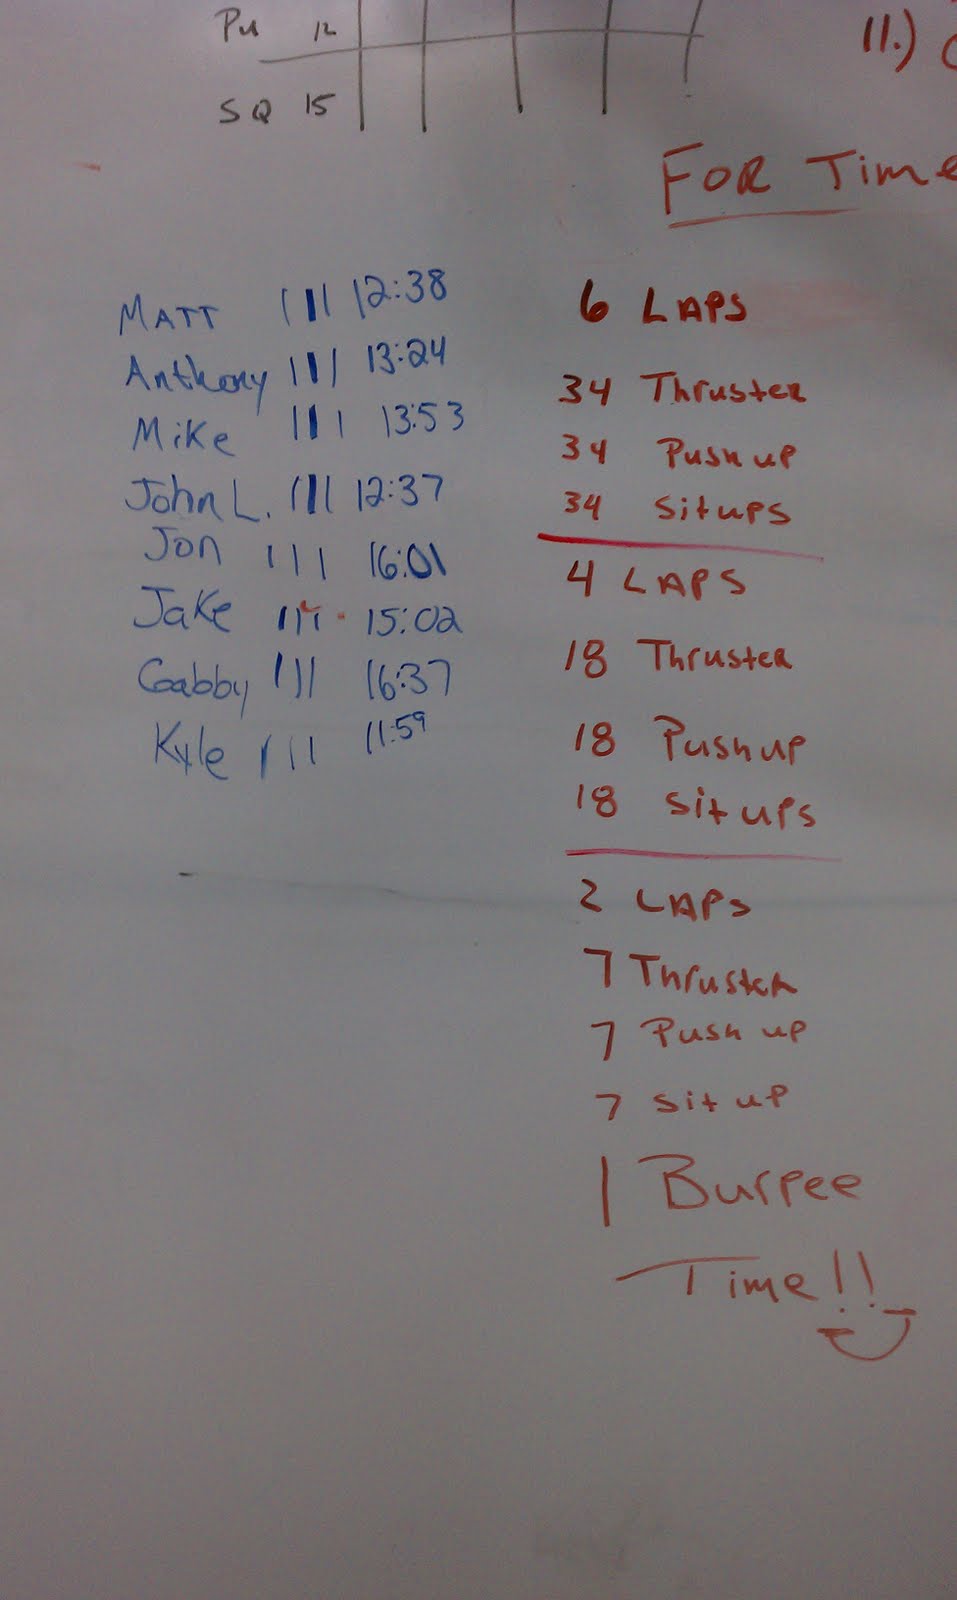 Pu 12
SQ 15
11.)
FOR Time
MATT ||| 12:38
Anthony ||| 13:24
Mike ||| 13:53
John L. ||| 12:37
Jon ||| 16:01
Jake ||| 15:02
Gabby ||| 16:37
Kyle ||| 11:59
6 LAPS
34 Thruster
34 Push up
34 Situps
4 LAPS
18 Thruster
18 Pushup
18 Sit ups
2 LAPS
7 Thruster
7 Push up
7 Sit up
1 Burpee
Time!!